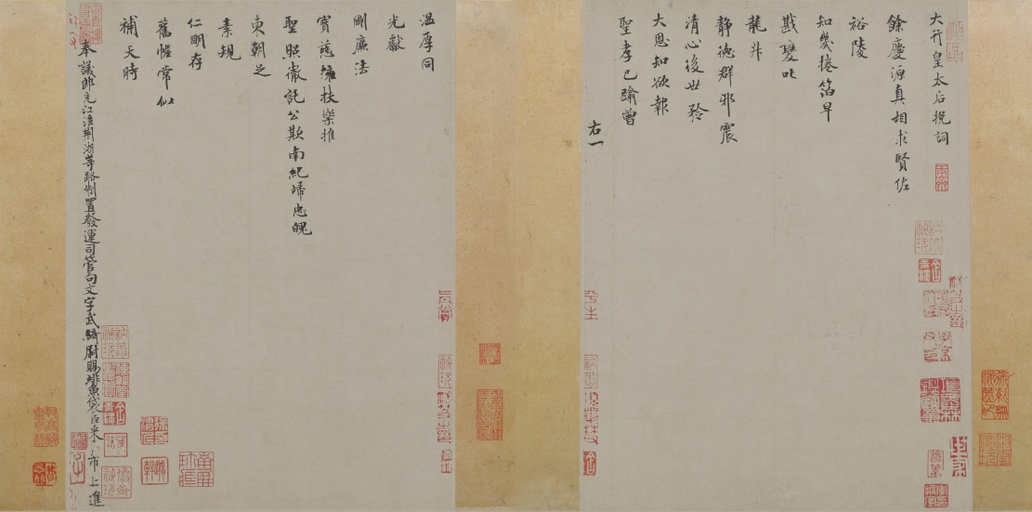 大行皇太后挽詞
餘慶源真相求賢佐
裕陵
知幾捲箔早
戡變叱
龍升
靜德群邪震
清心後世矜
大恩知欲報
聖孝已踰曾
右一
溫厚同
光獻
剛廉法
寶慈擁扶樂推
聖照撤託公欺南紀歸忠魄
東朝足
素規
仁明存
舊幄常似
補天時
奉議郎充江淮荆浙等路制置發運司管句文字武騎尉賜緋魚袋臣米市上進